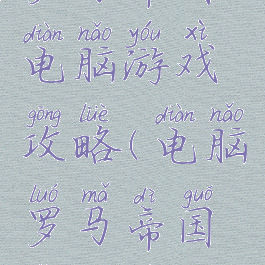 diàn nǎo yóu xì
电脑游戏
gōng lüè diàn nǎo
攻略(电脑
luó mǎ dì guó
罗马帝国